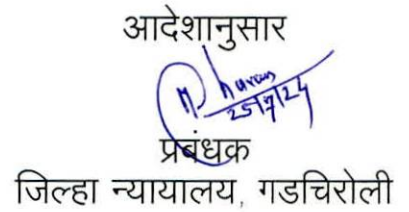 आदेशानुसार
25/7/24
प्रबंधक
जिल्हा न्यायालय, गडचिरोली